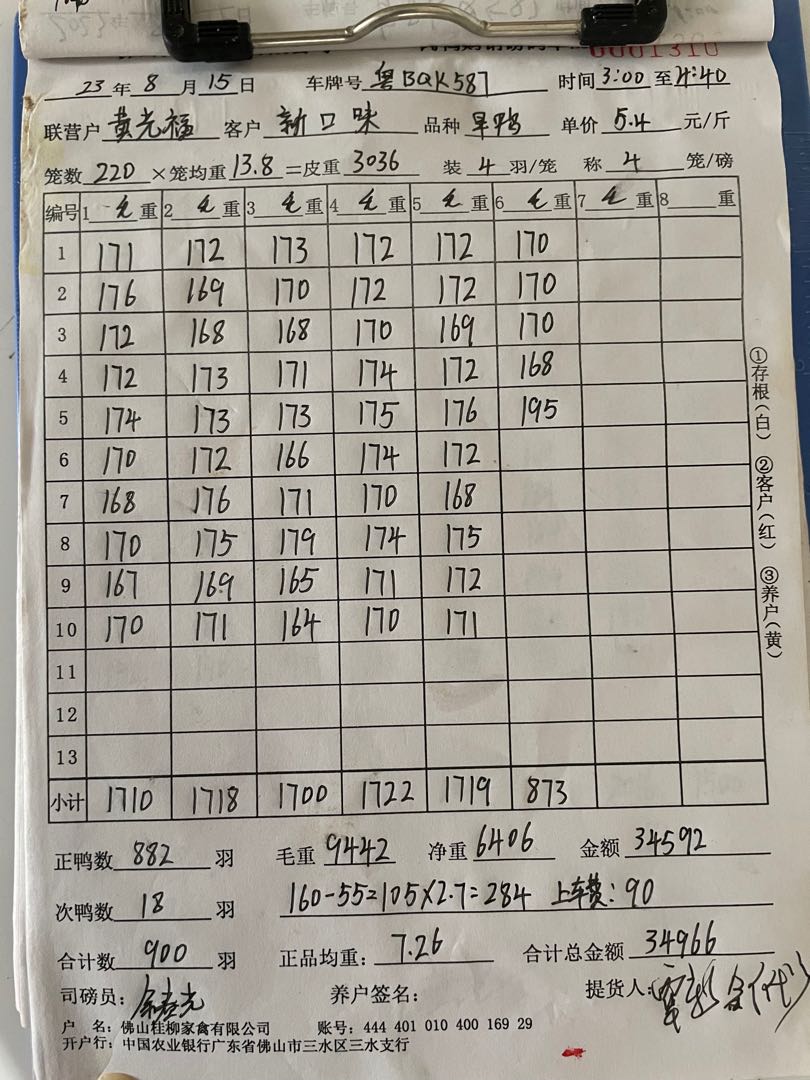 0001310
23 年 8 月 15 日 车牌号 粤BQK587 时间 3:00 至 4:40
联营户 黄光福 客户 新口味 品种 旱鸭 单价 5.4 元/斤
笼数 220 ×笼均重 13.8 =皮重 3036 装 4 羽/笼 称 4 笼/磅
编号 1 毛 重 2 毛 重 3 毛 重 4 毛 重 5 毛 重 6 毛 重 7 毛 重 8 重
1 171 172 173 172 172 170
2 176 169 170 172 172 170
3 172 168 168 170 169 170
4 172 173 171 174 172 168
5 174 173 173 175 176 195
6 170 172 166 174 172
7 168 176 171 170 168
8 170 175 179 174 175
9 167 169 165 171 172
10 170 171 164 170 171
11
12
13
小计 1710 1718 1700 1722 1719 873
①存根(白) ②客户(红) ③养户(黄)
正鸭数 882 羽 毛重 9442 净重 6406 金额 34592
次鸭数 18 羽 160-55=105×2.7=284 上车费: 90
合计数 900 羽 正品均重: 7.26 合计总金额 34966
司磅员: 养户签名: 提货人:
户 名: 佛山桂柳家禽有限公司 账号: 444 401 010 400 169 29
开户行: 中国农业银行广东省佛山市三水区三水支行